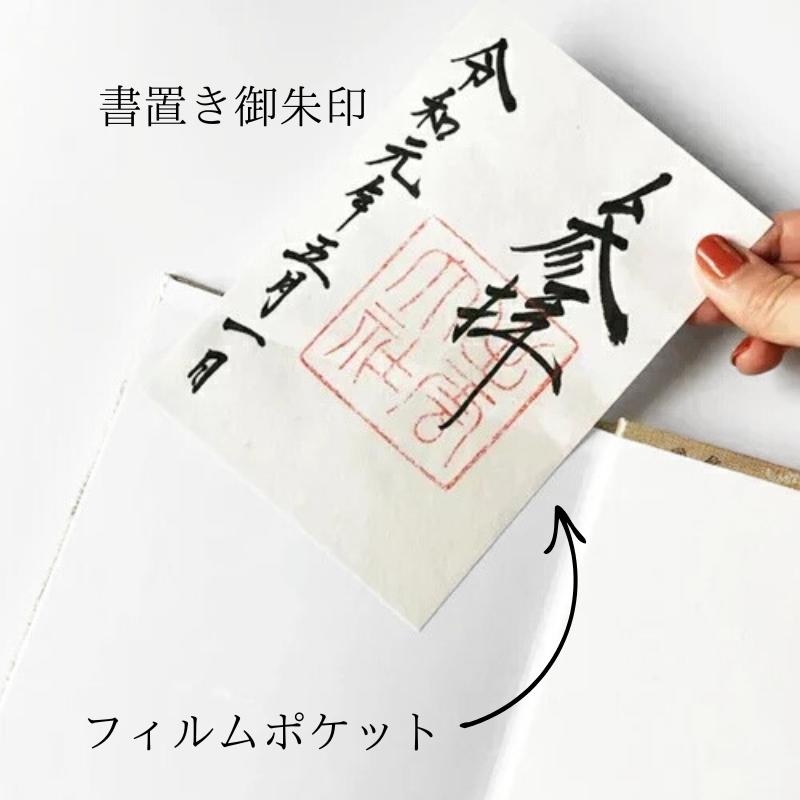 書置き御朱印
參拝
令和元年五月一日
フィルムポケット